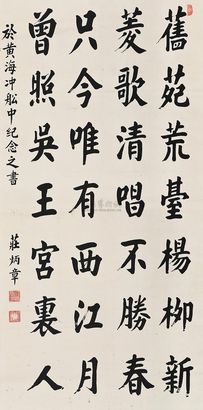 舊苑荒臺楊柳新
菱歌清唱不勝春
只今唯有西江月
曾照吳王宮裏人
於黃海沖舩中纪念之書
莊炳章